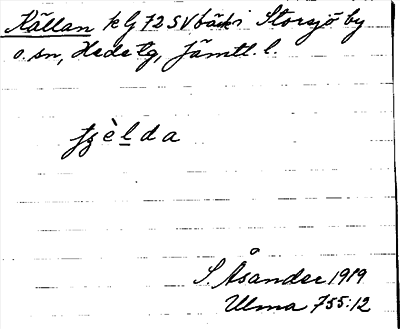 Källan klj 72 SV bäcki Storsjö by
o. sn, Hede tg, Jämtl. l.
tjèlda
S. Åsander 1919
Ulma 755:12